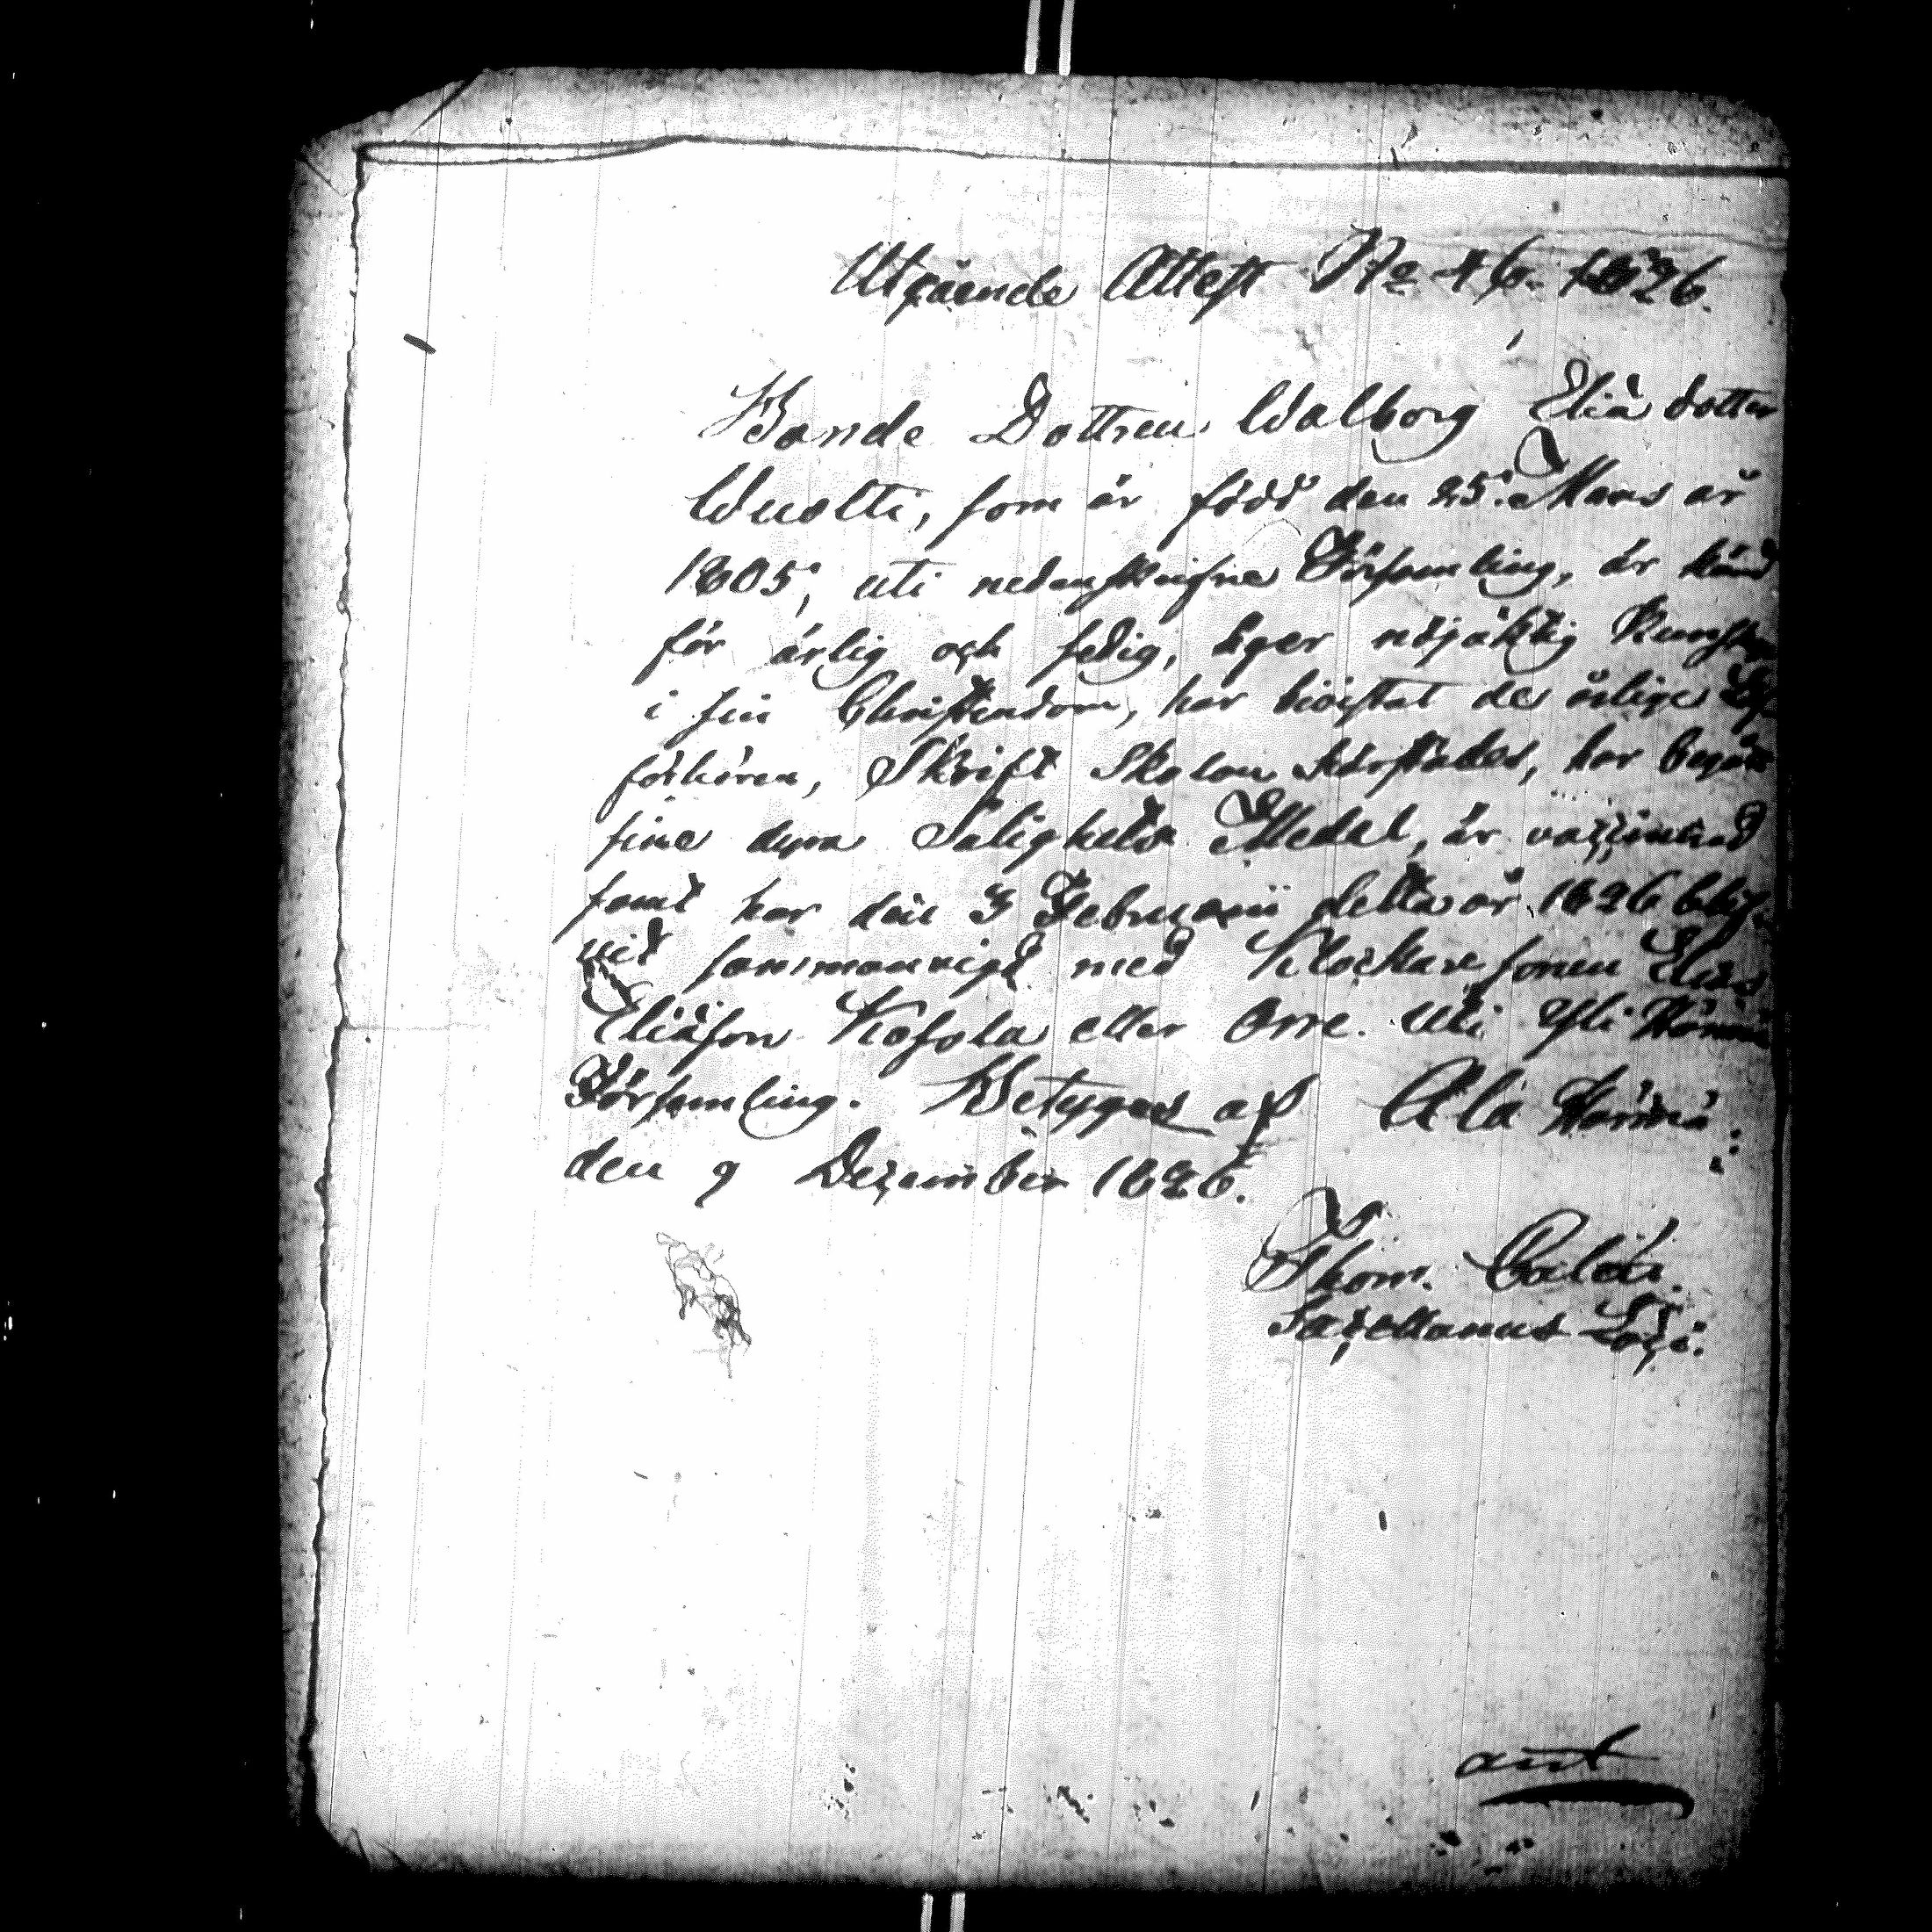 Utgående Attest No 46. 1826.
Bonde Dottren Walborg Eliä dotter
Wuolti, som är född den 25. Mars år
1805, uti nedanskrifne Församling, är känd
för ärlig och fedig, äger nöjaktig Kunskap
i sin Christendom, har bivistat de årlige
förhören, Skrift Skolan har begått
sine dyra Salighets Medel, är vaccinerad
samt har den 3 Februarii detta år 1826 blif-
vit sammanvigd med Klockare sonen Elias
Eliäson Kosola eller Orre. Uti Yli Härmä
Församling. Betygas af Ala Härmä:
den 9 December 1826.
Thom.
Sacellanus Loci.
ant